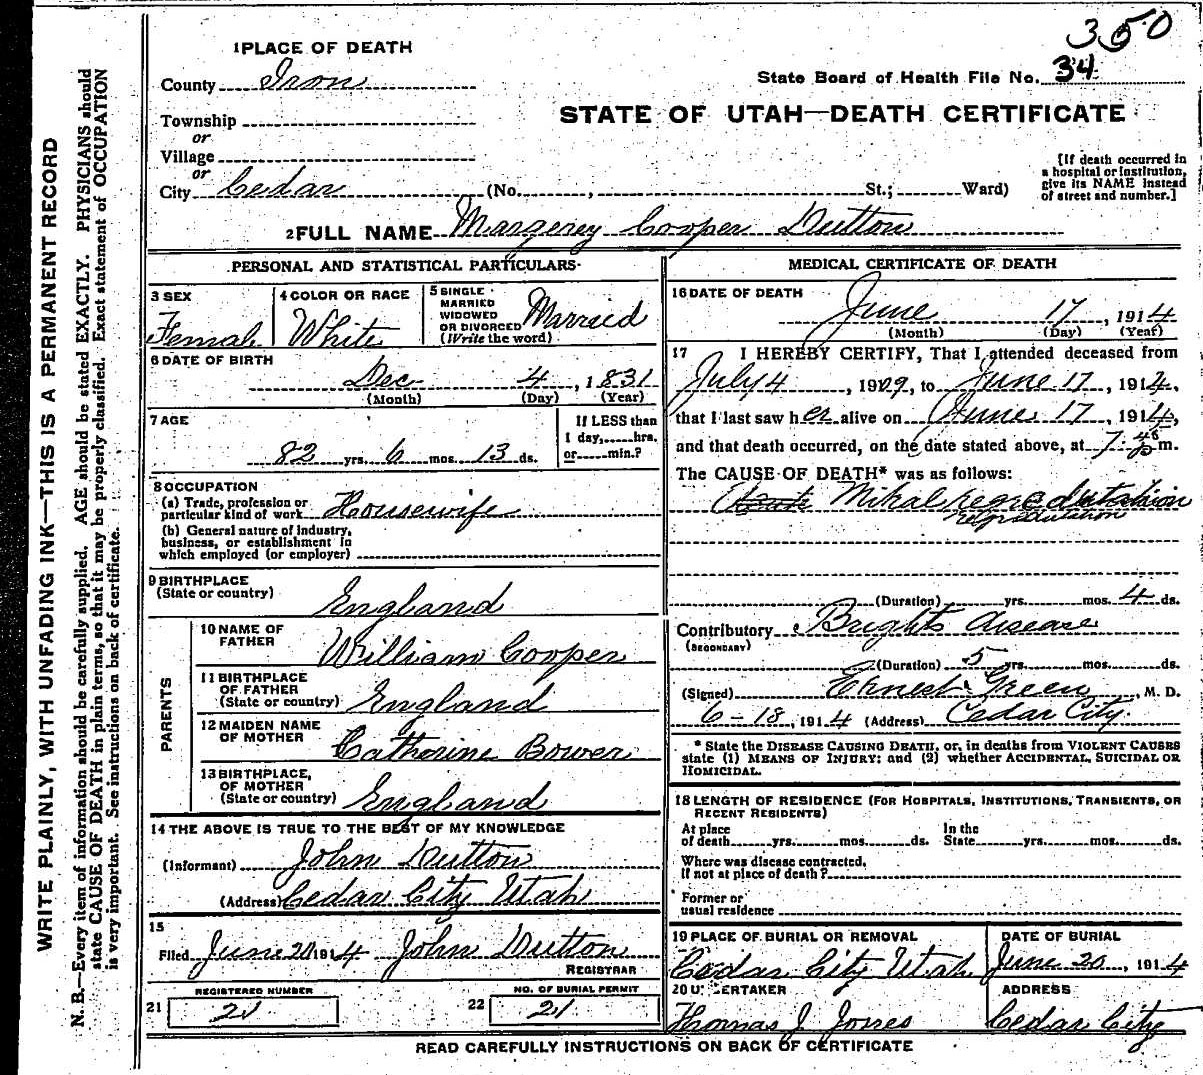 350
1 PLACE OF DEATH
County Iron
State Board of Health File No. 34
STATE OF UTAH—DEATH CERTIFICATE
Township
or
Village
or
City Cedar (No. , St.; Ward)
[If death occurred in
a hospital or institution,
give its NAME instead
of street and number.]
2 FULL NAME Margerey Cooper Dutton
PERSONAL AND STATISTICAL PARTICULARS
3 SEX
Female
4 COLOR OR RACE
White
5 SINGLE
MARRIED
WIDOWED
OR DIVORCED
(Write the word)
Married
6 DATE OF BIRTH
Dec 4, 1831
(Month) (Day) (Year)
7 AGE
82 yrs. 6 mos. 13 ds.
If LESS than
1 day,......hrs.
or......min.?
8 OCCUPATION
(a) Trade, profession or
particular kind of work Housewife
(b) General nature of industry,
business, or establishment in
which employed (or employer)
9 BIRTHPLACE
(State or country)
England
PARENTS
10 NAME OF
FATHER
William Cooper
11 BIRTHPLACE
OF FATHER
(State or country)
England
12 MAIDEN NAME
OF MOTHER
Catherine Bower
13 BIRTHPLACE,
OF MOTHER
(State or country)
England
14 THE ABOVE IS TRUE TO THE BEST OF MY KNOWLEDGE
(Informant) John Dutton
(Address) Cedar City Utah
15
Filed June 20 1914 John Dutton
REGISTRAR
REGISTERED NUMBER
21 21
NO. OF BURIAL PERMIT
22 21
MEDICAL CERTIFICATE OF DEATH
16 DATE OF DEATH
June 17, 1914
(Month) (Day) (Year)
17 I HEREBY CERTIFY, That I attended deceased from
July 4, 1909, to June 17, 1914,
that I last saw her alive on June 17, 1914,
and that death occurred, on the date stated above, at 7:45 p m.
The CAUSE OF DEATH* was as follows:
Mitral
(Duration) yrs. mos. 4 ds.
Contributory Brights disease
(SECONDARY)
(Duration) 5 yrs. mos. ds.
(Signed) Ernest Green, M. D.
6-18, 1914 (Address) Cedar City.
* State the DISEASE CAUSING DEATH, or, in deaths from VIOLENT CAUSES
state (1) MEANS OF INJURY; and (2) whether ACCIDENTAL, SUICIDAL OR
HOMICIDAL.
18 LENGTH OF RESIDENCE (FOR HOSPITALS, INSTITUTIONS, TRANSIENTS, OR
RECENT RESIDENTS)
At place
of death......yrs.......mos.......ds.
In the
State......yrs.......mos.......ds.
Where was disease contracted,
if not at place of death?
Former or
usual residence
19 PLACE OF BURIAL OR REMOVAL
Cedar City Utah
DATE OF BURIAL
June 20, 1914
20 U ERTAKER
Thomas J. Jones
ADDRESS
Cedar City
READ CAREFULLY INSTRUCTIONS ON BACK OF CERTIFICATE
WRITE PLAINLY, WITH UNFADING INK—THIS IS A PERMANENT RECORD
N. B.—Every item of information should be carefully supplied. AGE should be stated EXACTLY. PHYSICIANS should
state CAUSE OF DEATH in plain terms, so that it may be properly classified. Exact statement of OCCUPATION
is very important. See instructions on back of certificate.